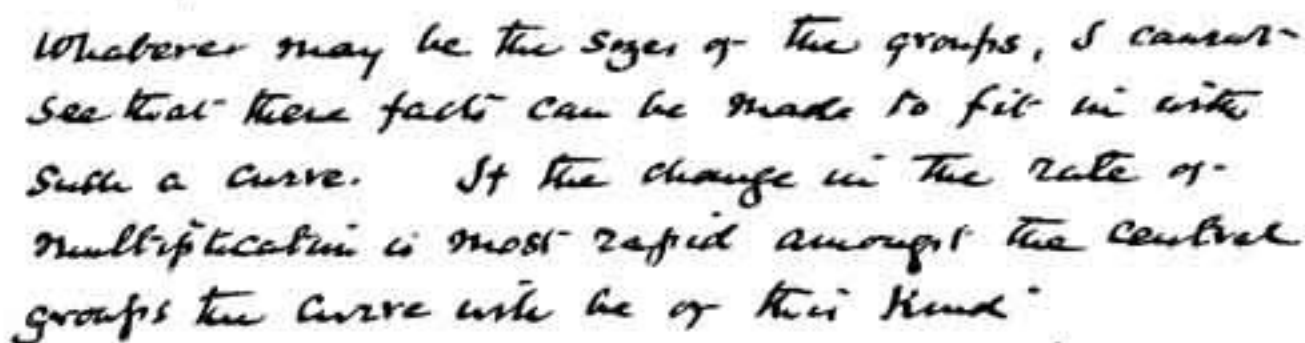 Whatever may be the sizes of the groups, I cannot
see that these facts can be made to fit in with
such a curve. If the change in the rate of
multiplication is most rapid amongst the central
groups the curve will be of this kind